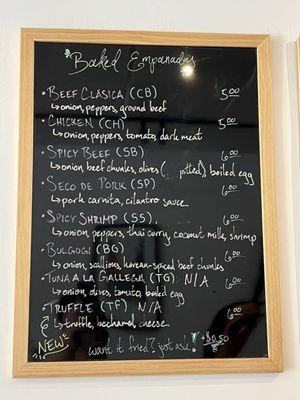 *Baked Empanadas
• BEEF CLÁSICA (CB) 5.00
↳ onion, peppers, ground beef
• CHICKEN (CH) 5.00
↳ onion, peppers, tomato, dark meat
• SPICY BEEF (SB) 6.00
↳ onion, beef chunks, olives (pitted), boiled egg
• SECO DE PORK (SP) 6.00
↳ pork carnita, cilantro sauce
• SPICY SHRIMP (SS) 6.00
↳ onion, peppers, thai curry, coconut milk, shrimp
• BULGOGI (BG) 6.00
↳ onion, scallions, korean-spiced beef chunks
• TUNA A LA GALLEGA (TG) N/A 6.00
↳ onion, olives, tomato, boiled egg
• TRUFFLE (TF) N/A 6.00
↳ truffle, bechamel, cheese
NEW
want it fried? just ask! +$0.50